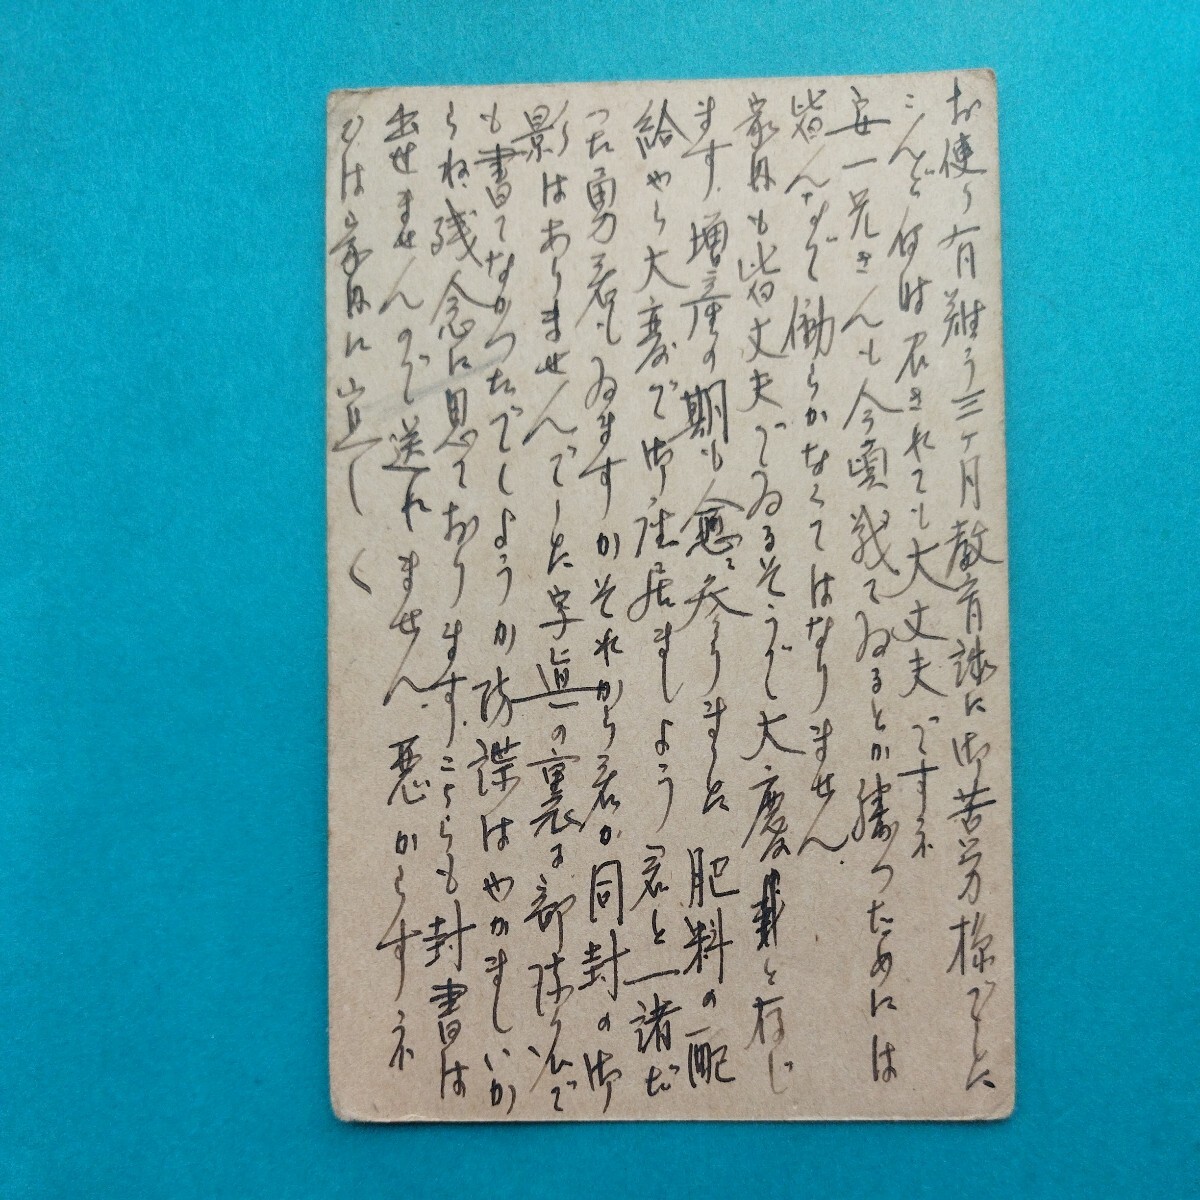 お便り有難う三ヶ月教育誠に御苦労様でした
こんど何時召されても大丈夫ですネ
安一兄さんも今頃戦てゐるとか勝つためには
皆んなで働らかなくてはなりません
家内も皆丈夫でゐるそうで大慶と存じ
ます、増産の期も愈々参りました 肥料の配
給やら大変で御座居ましよう 君と一諸だ
つた勇君もゐますかそれから君が同封の御
影はありませんでした字真の裏に部隊名で
も書てなかつたでしようか防諜はやかましいか
らね残念に思ております、こちらも封書は
出せませんので送れません、悪からすネ
では家内に宜しく